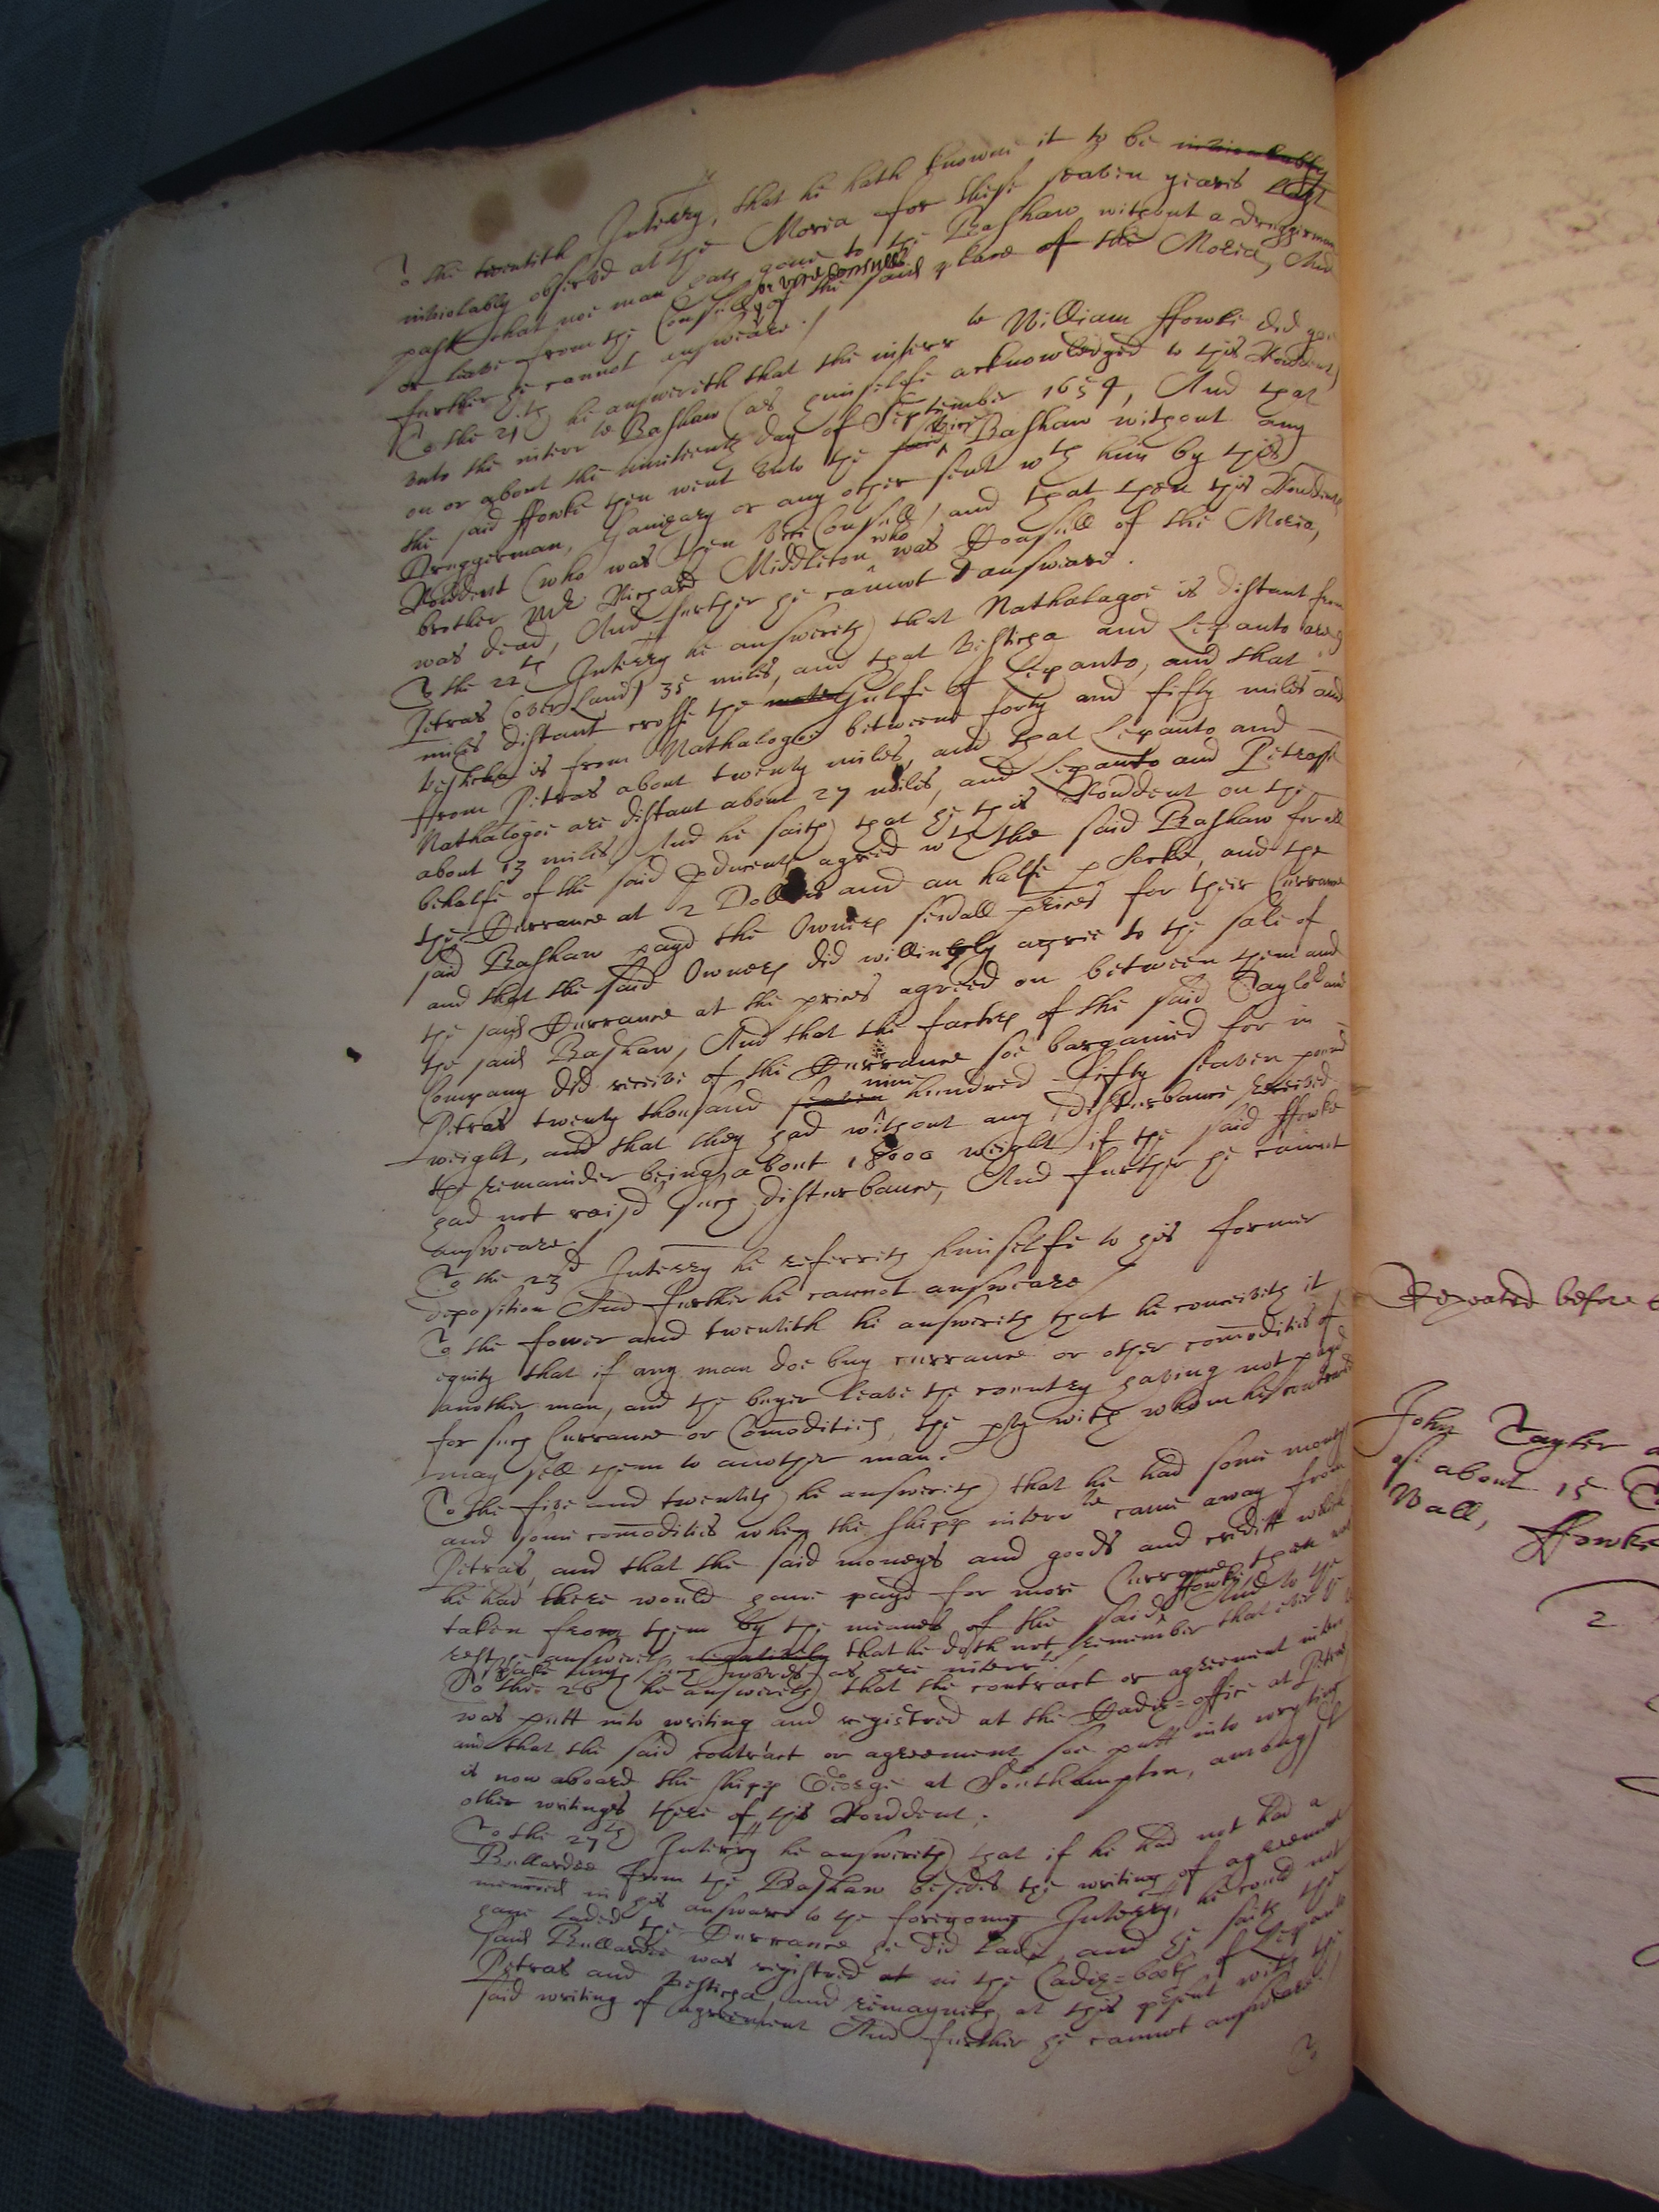 To the twentith Interry, that he hath knowne it to be inviolably
inviolably observd at the Morea for these seaven yeares last
past that noe man hath gone to the Bashaw without a Druggerman
or leave from the Consull or vice Consull of the said place of the Morea, And
further he cannot answeare./
To the 21th he answereth that the interr te William ffowke did goe
unto the interr te Bashaw (as himselfe acknowledged to this Rendent)
on or about the nineteenth day of September 1654, And that
the said ffowke then went unto the said vice Bashaw without any
Druggerman, Janizary or any other sent wth him by this
Rondent (who was then vice Consull) and that then this Rondents
brother Mr Richard Middleton who was Consull of the Morea,
was dead, And further he cannot answeare.
To the 22th Interry he answereth that Nathalagoe is distant from
Petras (over land) 35 miles, and that Vestiza and Lepanto are
miles distant crosse the water gulfe of Lepanto, and that
Vestiza is from Nathalogoe betweene forty and fifty miles and
from Petras about twenty miles, and that Lepanto and
Nathalogoe are distant about 27 miles, and Lepanto and Petrasse
about 13 miles, And he saith that he this Rondent on the
behalfe of the said producents agreed wth the said Bashaw for all
the Currance at 2 Dollers and an halfe p sacke, and the
said Bashaw payd the Owners severall prices for their Currance
and that the said Owners did willingly agree to the sale of
the said Currance at the prices agreed on between them and
the said Bashaw, And that the factors of the said Taylor and
Company did receive of the Currance soe bargained for in
Petras twenty thousand seaven nine hundred fifty seaven pound
weight, and that they had without any disturbance received
the remainder being about 18000 weight if the said ffowke
had not raisd such disturbance, And further he cannot
answeare./
To the 23d Interry he referreth himselfe to his former
deposition And further he cannot answeare/
To the fower and twentith he answereth that he conceiveth it
equity that if any man doe buy currance or other comodities of
another man, and the buyer leave the country having not payd
for such Currance or Comodities, the pty with whom he contracted
may sell them to another man.
To the five and twentith he answereth that he had some moneys
and some comodities when the shipp interr te came away from
Petras, and that the said moneys and goods and creditt which
he had there would have payd for more Currance then was
taken from them by the meanes of the said ffowke And to the
rest he answereth negatively that he doth not remember that ever he
spake any such words as are interr te.
To the 26 he answereth that the contract or agreement interr
was putt into writing and registred at the Cadis=office at Petras
and that the said contract or agreement soe putt into wryting
is now aboard the shipp George at Southampton, amongst
other writings there of this Rondent.
To the 27th Interry he answereth that if he had not had a
Bullardee from the Bashaw besides the writing of agreement
menconed in his answare to the foregoing Interry, he could not
have laded the Currance he did lade, and he saith the
said Bullardee was registred at in the Cadis=books of Lepanto
Petras and Vestiza, and remayneth at this psent with the
said writing of agreement And further he cannot answeare./
To
Repeated before
John Tayler
of about 15
Wall,
ffowke
2